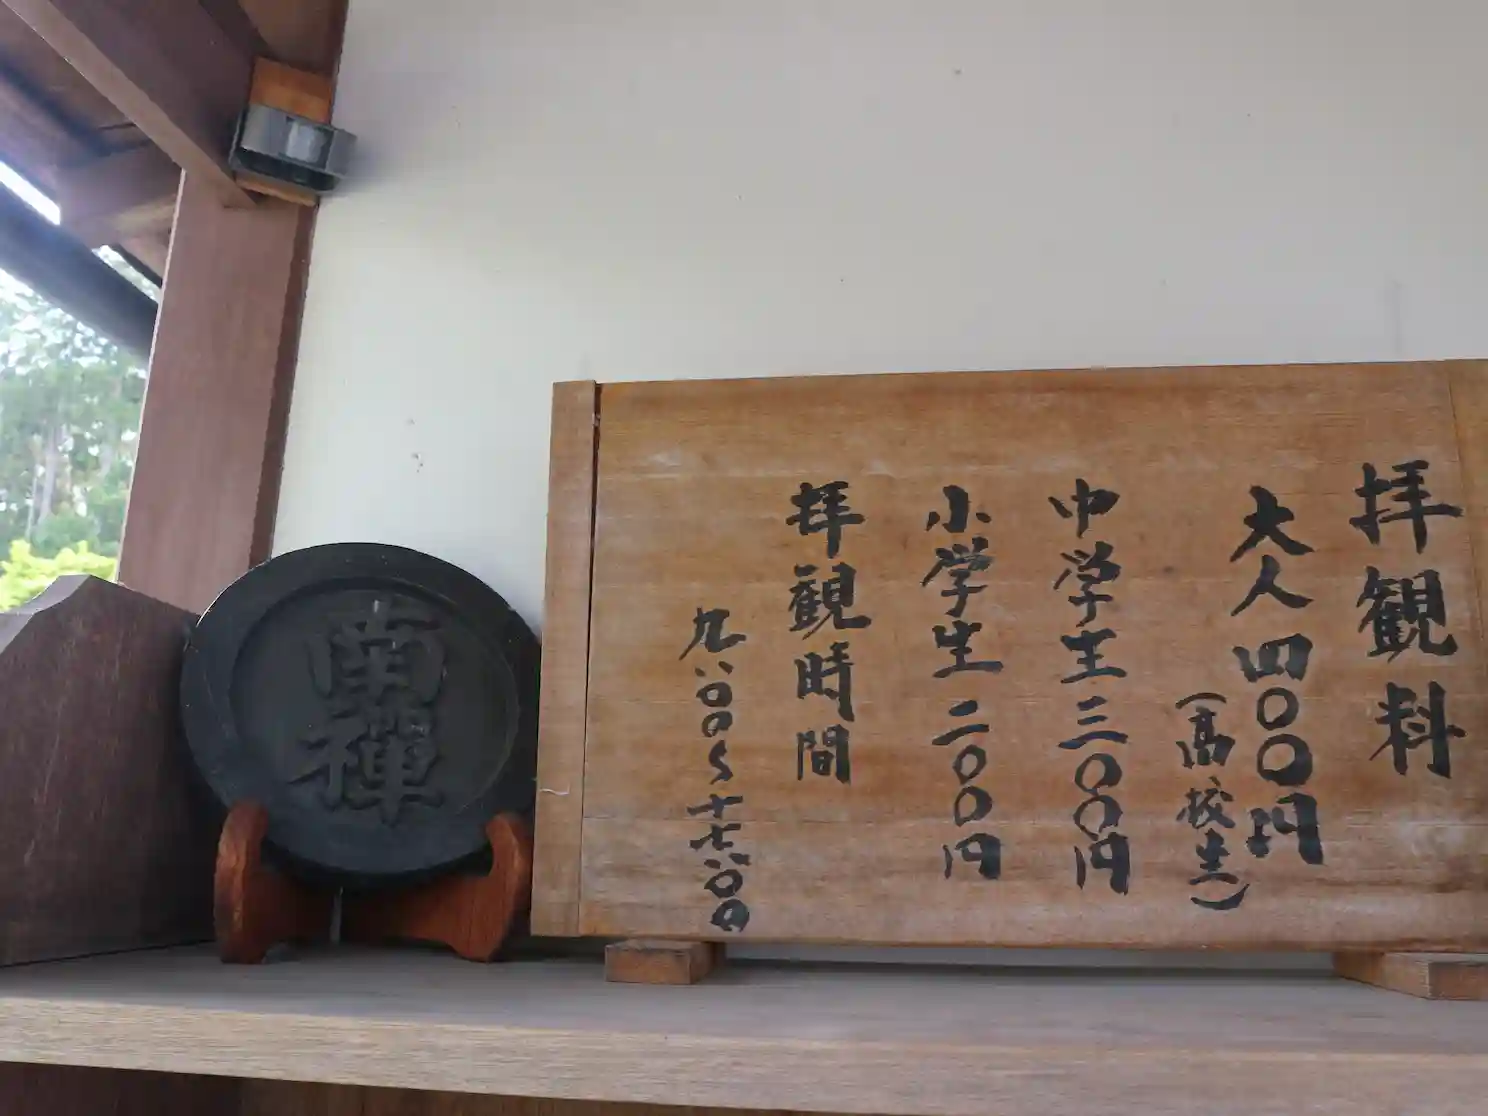 拝観料
大人四〇〇円
(高校生)
中学生三〇〇円
小学生二〇〇円
拝観時間
九:〇〇〜十七:〇〇
南禅